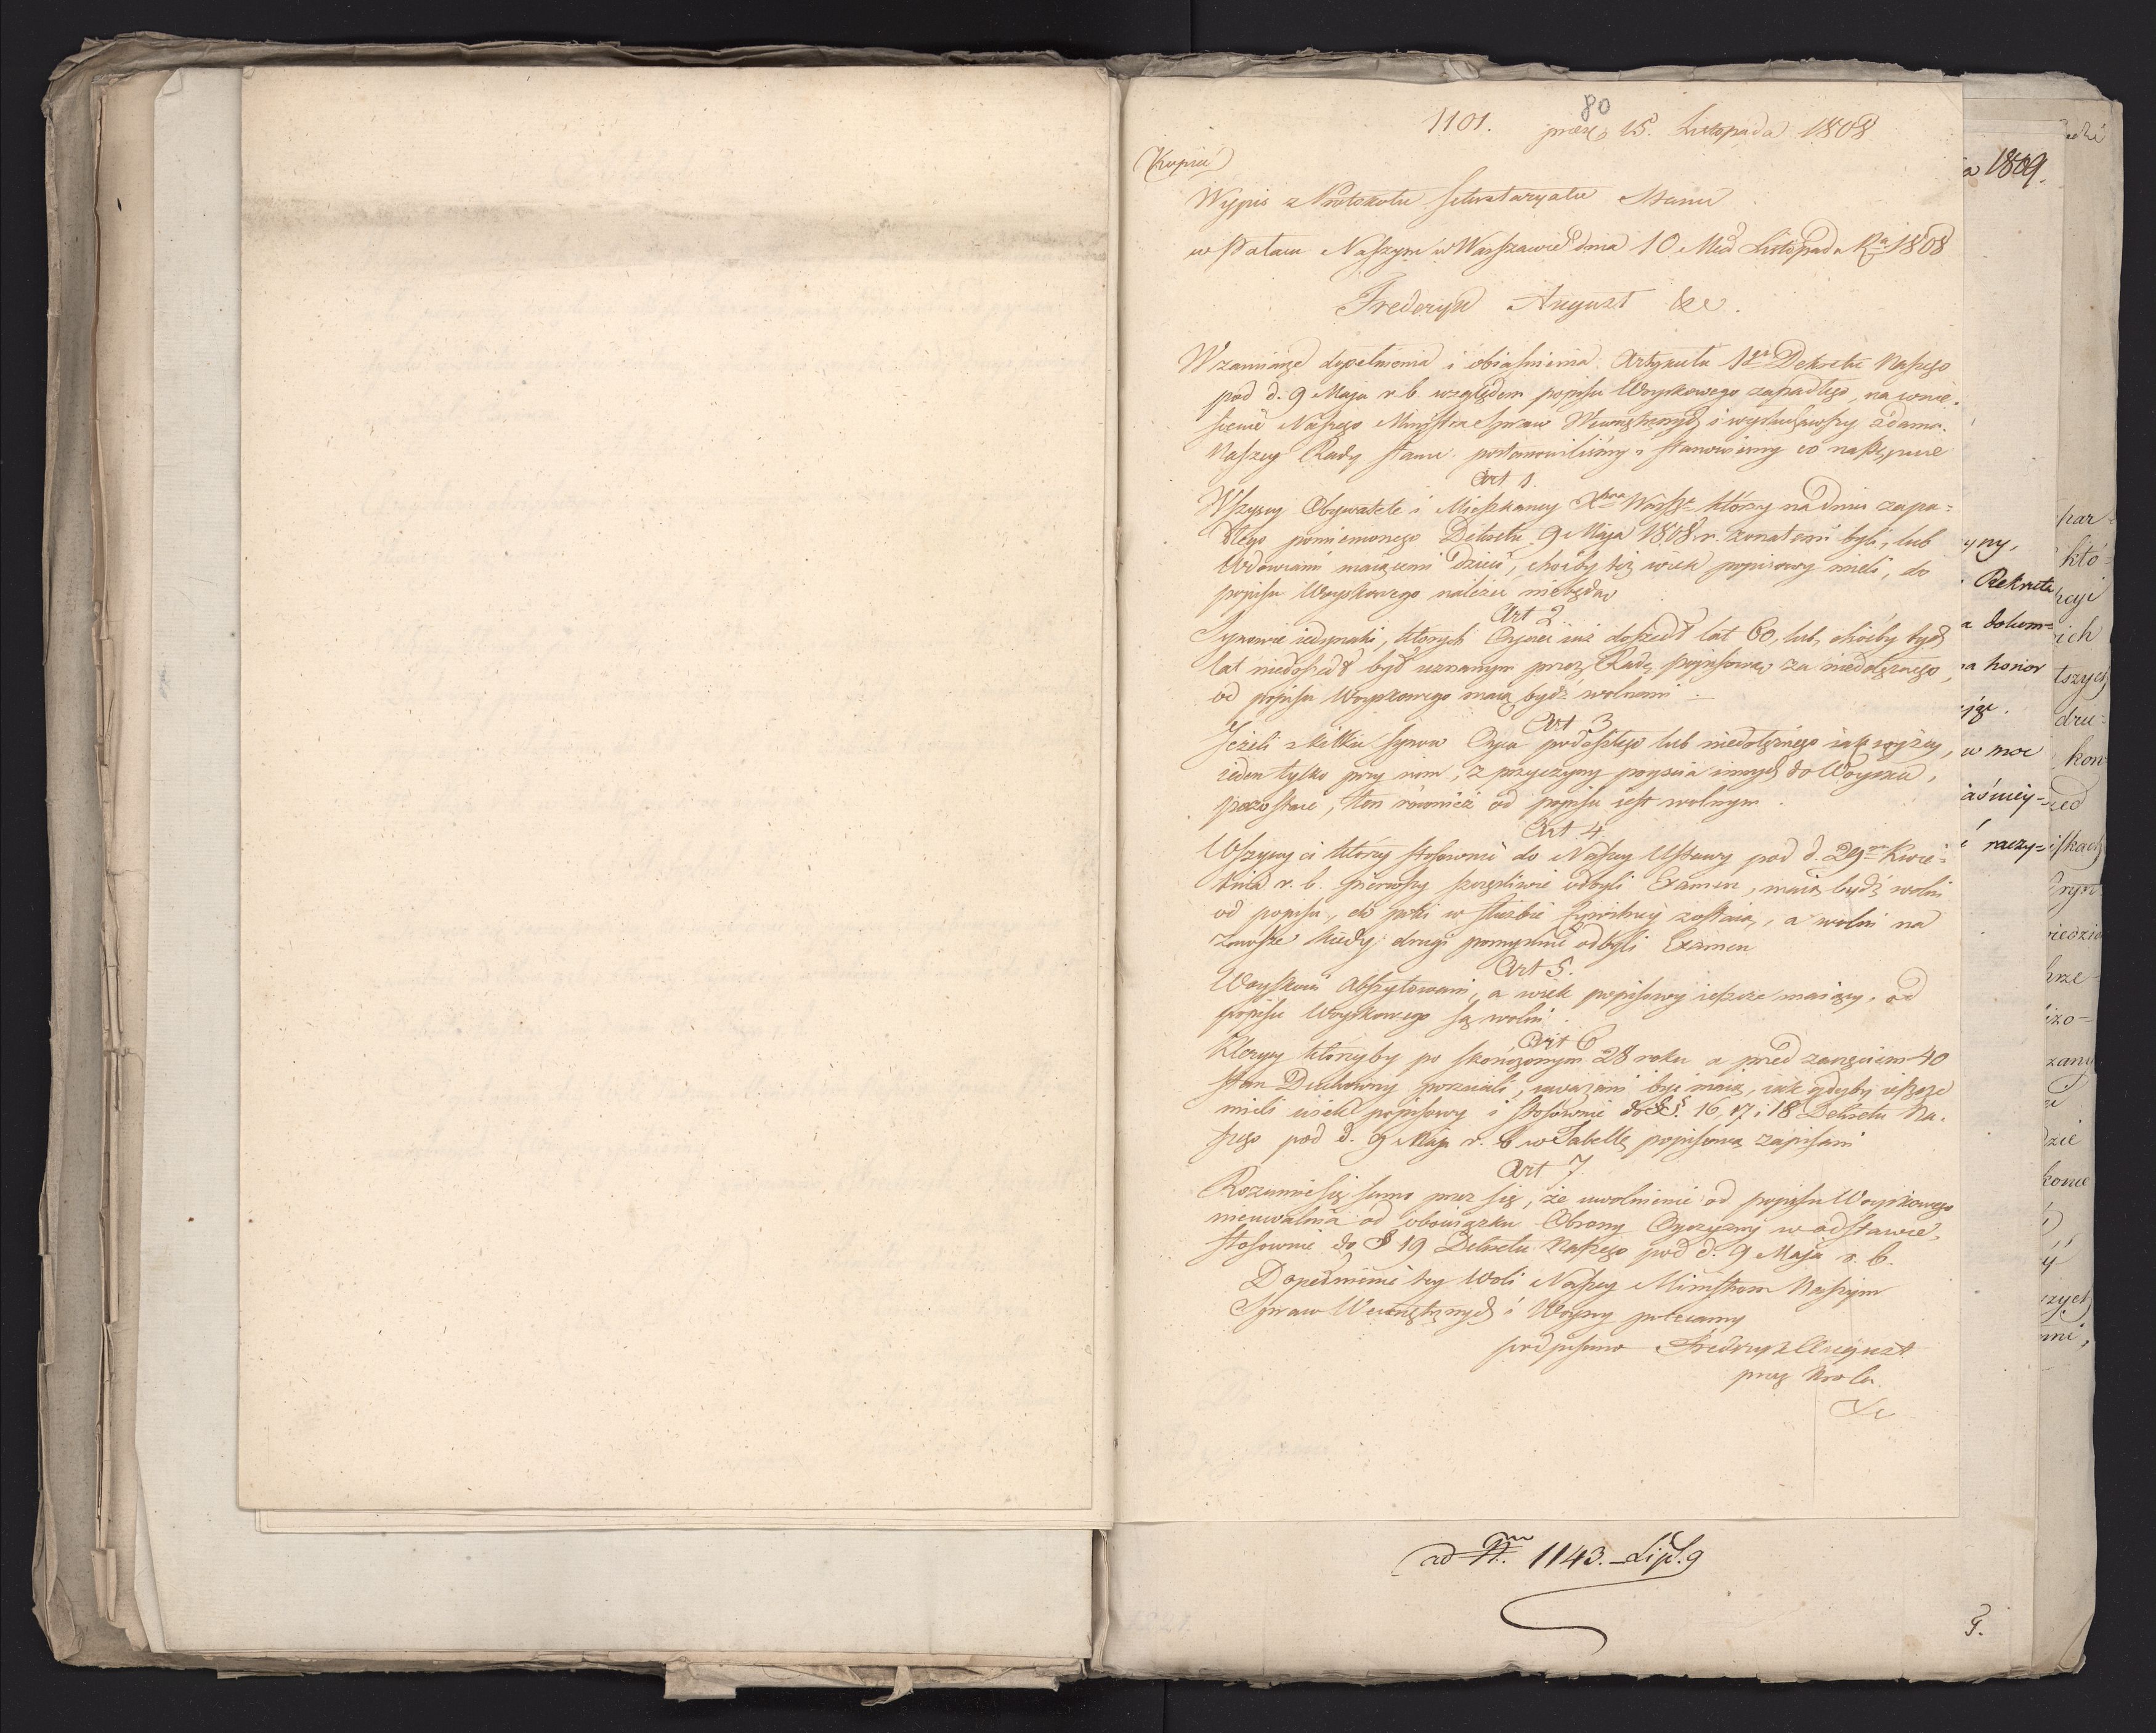 80
1101. prez. 15. Listopada 1808
(Kopia)
Wypis z Protokołu Sekretaryatu Stanu
w Pałacu Naszym w Warszawie dnia 10 Mca Listopada Ra 1808
Frederyk August &c.
W zamiarze dopełnienia i obiaśnienia Artykułu 1go Dekretu Naszego
pod d. 9 Maja r. b. względem popisu Woyskowego zapadłego, na wnie-
sienie Naszego Ministra Spraw Wewnętrznych i wysłuchawszy zdania
Naszey Rady Stanu postanowiliśmy i stanowiemy co następuie
Art 1.
Wszyscy Obywatele i Mieszkańcy Xtwa Warsz: którzy na dniu zapa-
dłego pomienionego Dekretu 9 Maja 1808 r. żonatemi byli, lub
Wdowcami maiącemi dzieci, choćby też wiek popisowy mieli, do
popisu Woyskowego należeć niebędą
Art 2
Synowie iedynaki, których Oyciec iuż doszedł lat 60, lub, choćby tych
lat niedoszedł był uznanym przez Radę popisową za niedołężnego,
od popisu Woyskowego maią bydź wolnemi
Art 3
Jeżeli z kilku synow Oyca podeszłego lub niedołężnego iak wyżey,
ieden tylko przy nim, z przyczyny poyścia innych do Woyska,
pozostaie, ten również od popisu iest wolnym.
Art 4
Wszyscy ci którzy stosownie do Naszey Ustawy pod d. 29 Kwie-
tnia r. b. pierwszy szczęśliwie odbyli Examen, maią bydź wolni
od popisu, do poki w służbie Cywilney zostaią, a wolni na
zawsze kiedy drugi pomyślnie odbyli Examen
Art 5.
Woyskowi Abszytowani, a wiek popisowy ieszcze maiący, od
popisu Woyskowego są wolni.
Art 6
Klerycy którzyby po skończonym 28 roku a przed zaczęciem 40
stan Duchowny porzucili, uważani być maią, iak gdyby ieszcze
mieli wiek popisowy i stosownie do §§. 16, 17 i 18 Dekretu Na-
szego pod d. 9 Maja r. b w Tabellę popisową zapisani
Art 7.
Rozumie się samo przez się, że uwolnienie od popisu Woyskowego
nieuwalnia od obowiązku Obrony Oyczyzny w odstawie,
stosownie do § 19 Dekretu Naszego pod d. 9 Maja r. b.
Dopełnienie tey Woli Naszey Ministrom Naszym
Spraw Wewnętrznych i Woyny polecamy
podpisano Frederyk August
przez Krola
&c
ad N. 1143. Lip. 9
a 1809.
yny,
Rekruta
a dokum=
na honor
w moc
aśniey=
raczy=
par
któ
ich
tszych
dru=
kon
zed
krze
izo=
zany
zie
zych